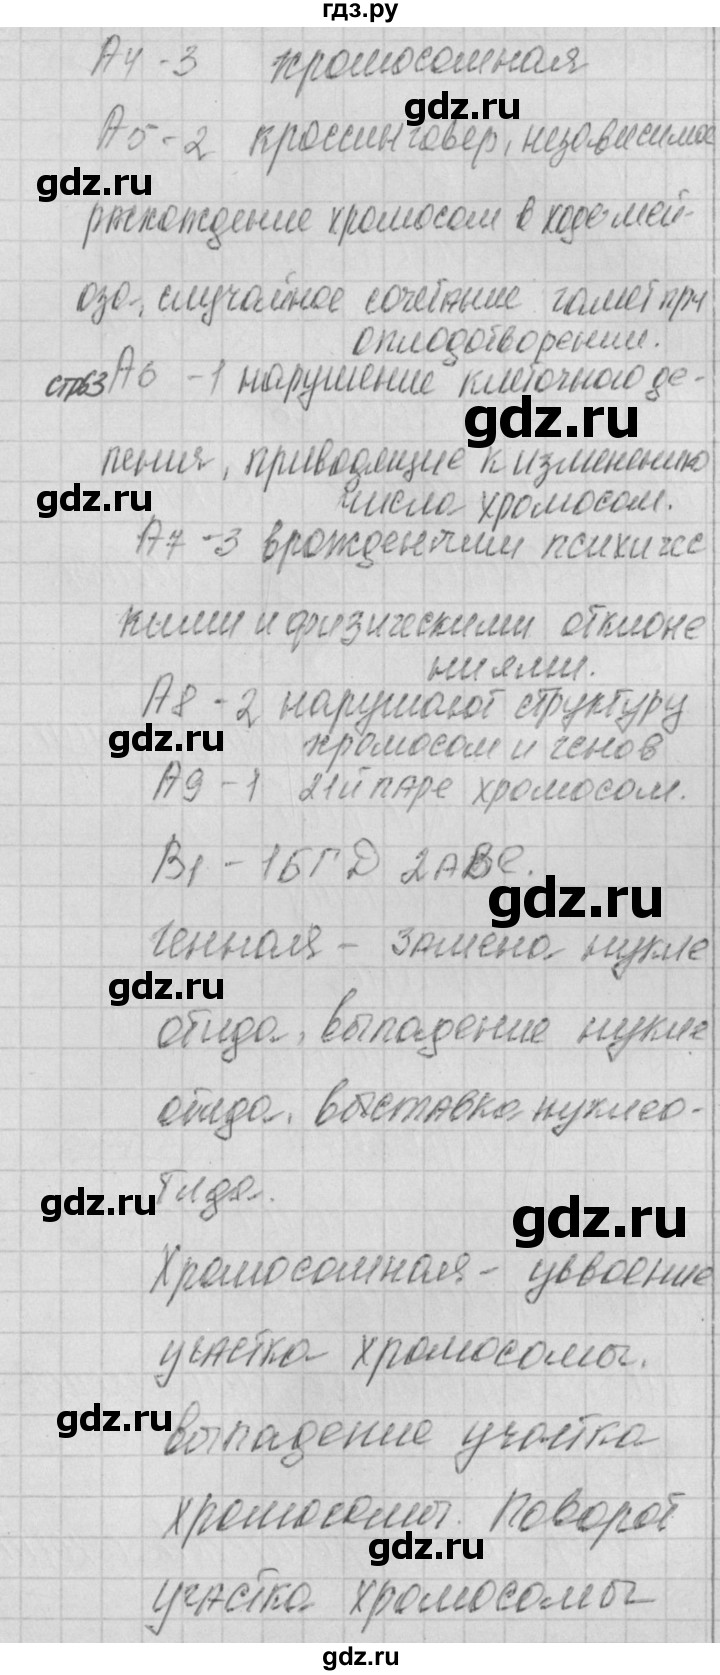 гдз.ру
А4 - 3 хромосомная
gdz.ru
А5 - 2 кроссинговер, независимое
gdz.ru
расхождение хромосом в ходе мей-
оза, случайное сочетание гамет при
оплодотворении.
стр63 А6 - 1 нарушение клеточного де-
gdz.ru
ления, приводящие к изменению
gdz.ru
числа хромосом.
А7 - 3 врожденными психичес
кими и физическими отклоне
ниями.
А8 - 2 нарушают структуру
gdz.ru
хромосом и генов
А9 - 1 21й паре хромосом.
В1 - 1БГД 2АВЕ.
gdz.ru
генная - замена нукле
gdz.ru
отида, выпадение нукле
отида, выставка нуклео-
тида.
gdz.ru
gdz.ru
Хромосомная - удвоение
участка хромосомы.
gdz.ru
выпадение участка
хромосомы. Поворот
gdz.ru
участка хромосомы
gdz.ru